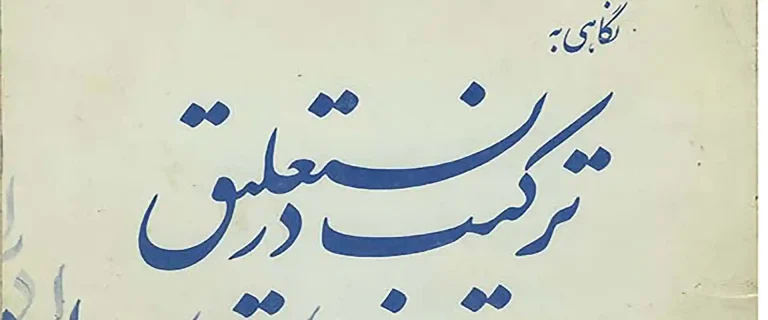 نگاهی به
ترکیب در نستعلیق